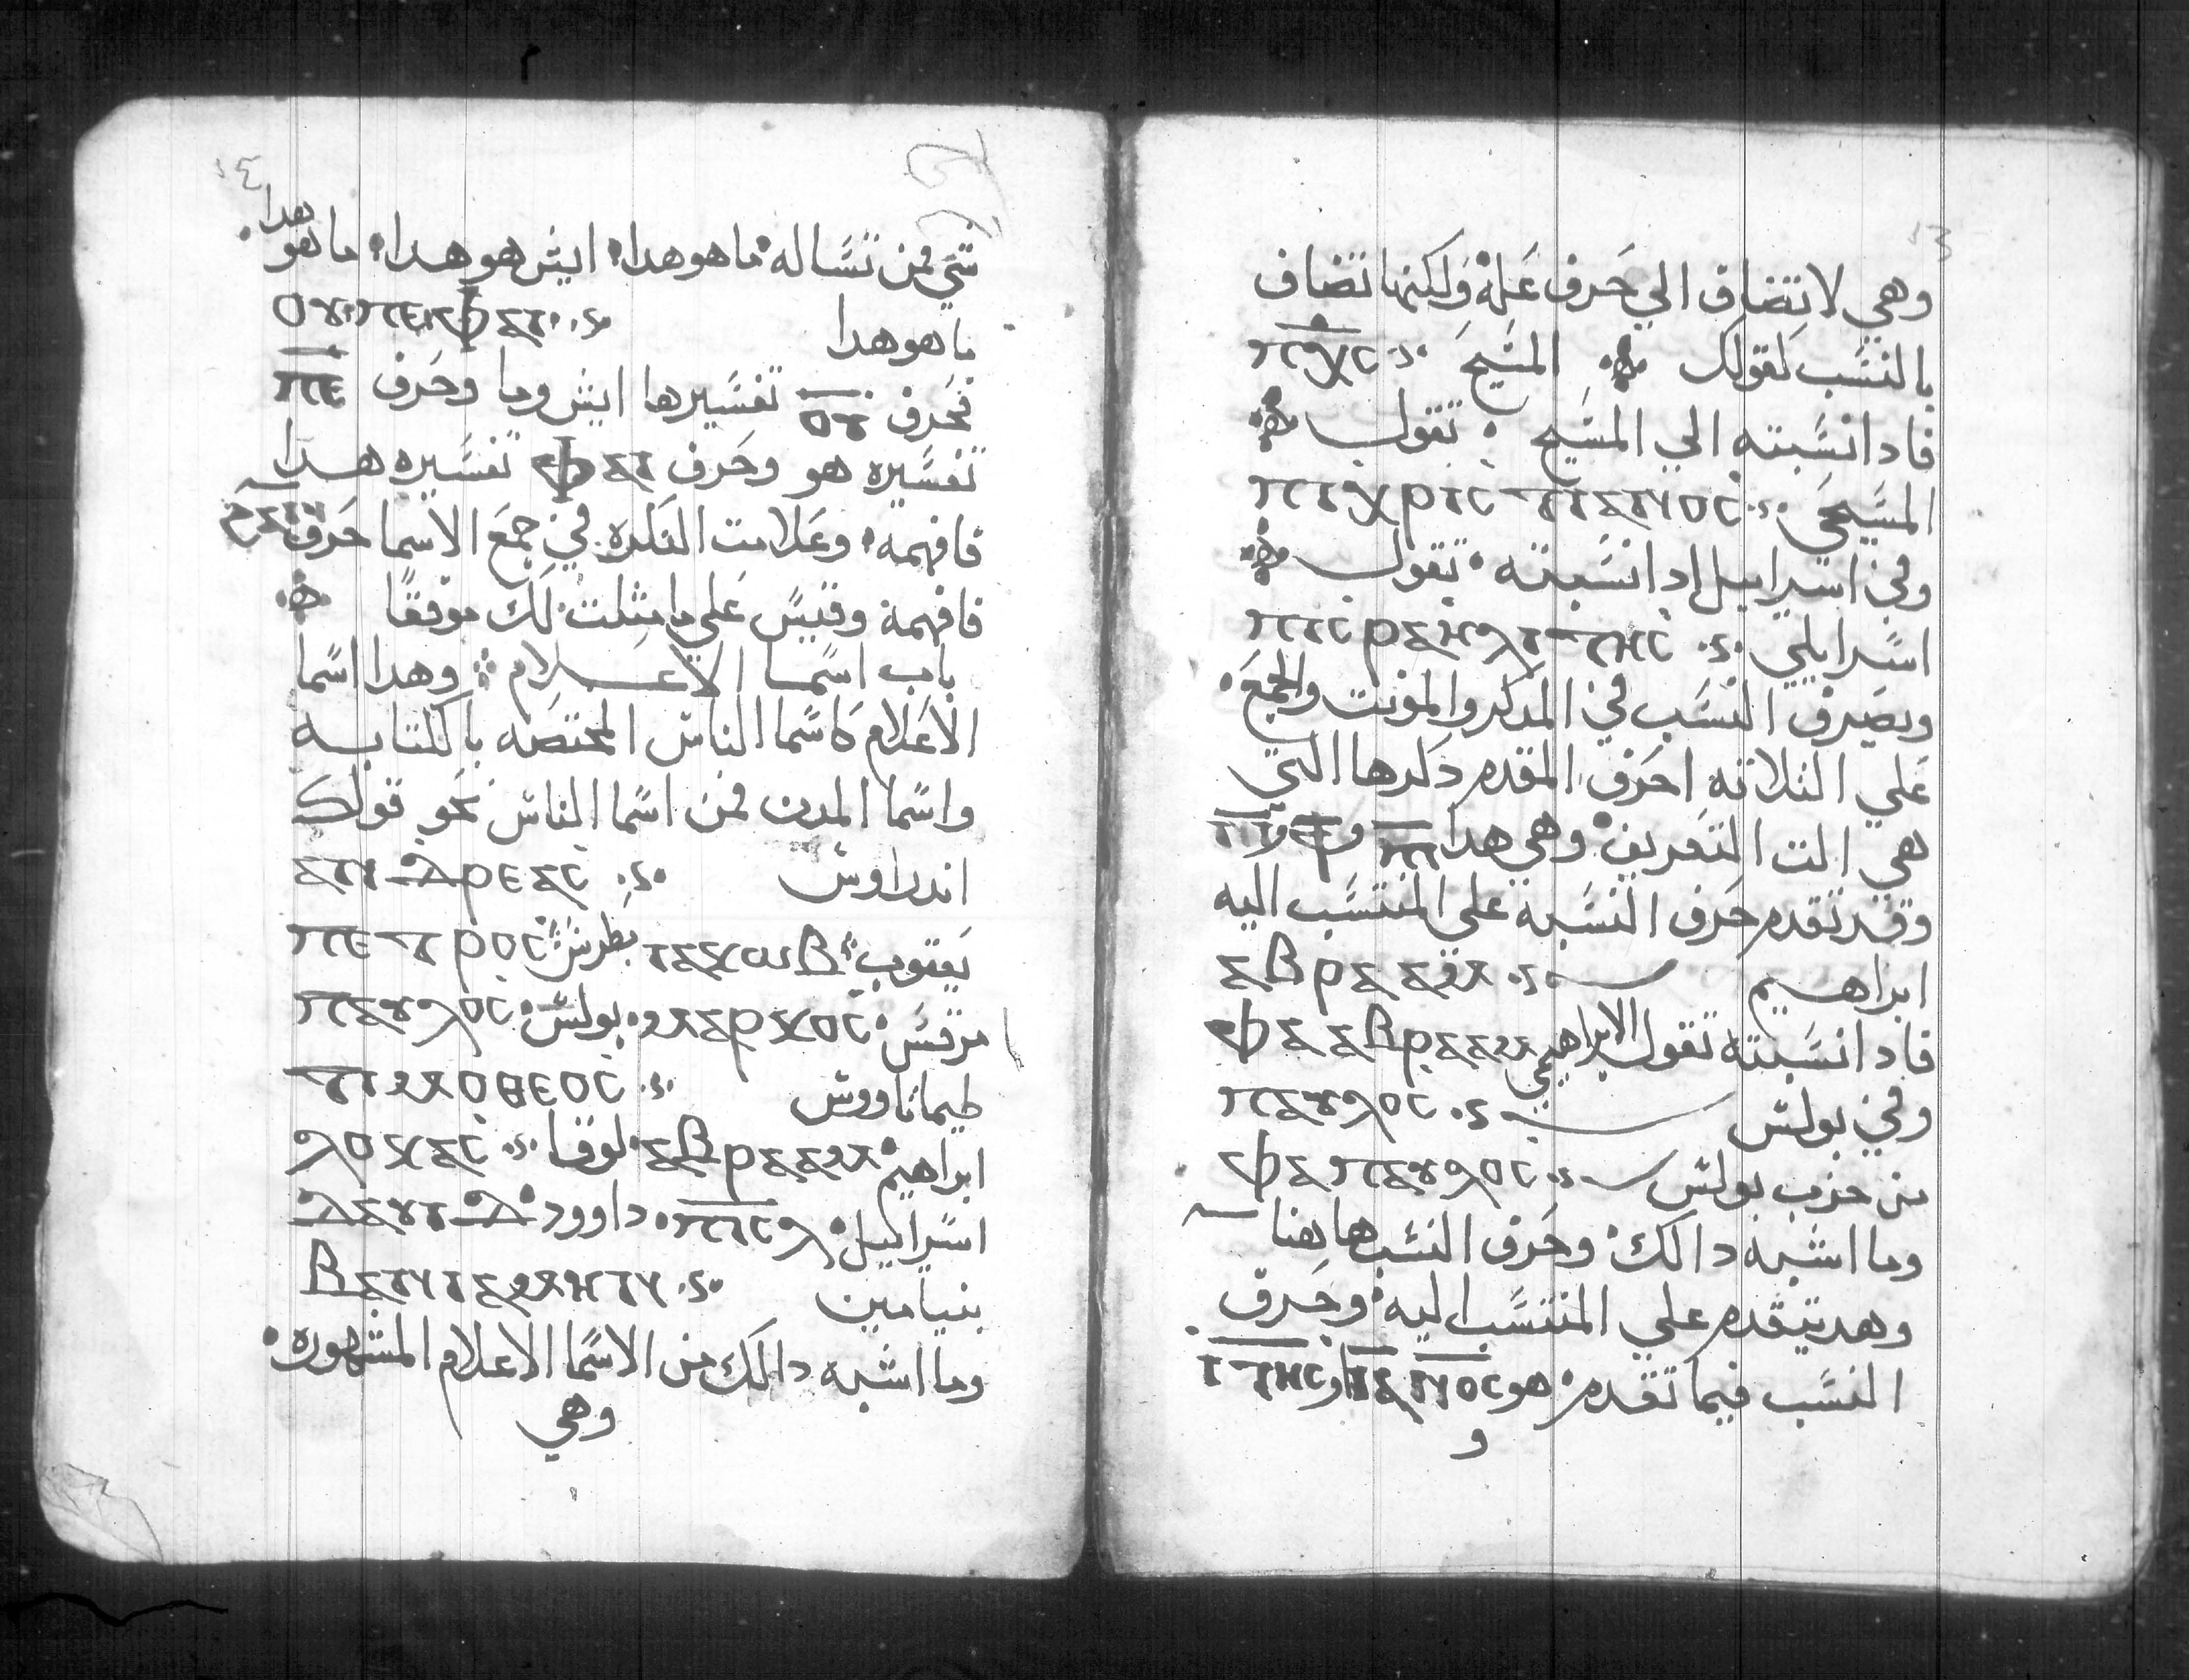 وهي لا تضاف الي حرف عله ولكنها تضاف
بالنسب لقولك المسيح ⲡⲭ̅ⲥ̅
فادا نسبته الي المسيح تقول
المسيحي ⲡⲓⲭⲣⲓⲥⲧⲓⲁⲛⲟⲥ
وفي اسراييل ادا نسبته تقول
اسراييلي ⲡⲓⲥⲣⲁⲏⲗⲓⲧⲏⲥ
ويصرف النسب في المدكر والمونت والجمع
علي التلاته احرف المقدم دكرها التي
هي الت التعريف وهي هدا ⲡⲓ و ϯ و ⲛⲓ
وقد تقدم حرف النسبه علي المنتسب اليه
ابراهيم ⲁⲃⲣⲁⲁⲙ
فادا نسبته تقول الابراهيمي ⲫⲁ ⲁⲃⲣⲁⲁⲙ
وفي بولس ⲡⲁⲩⲗⲟⲥ
من حزب بولس ⲫⲁ ⲡⲁⲩⲗⲟⲥ
وما اشبه دالك وحرف النسب هاهنا
وهد يتقدم علي المنتسب اليه وحرف
النسب فيما تقدم هو ⲓⲁⲛⲟⲥ و ⲓⲧⲏⲥ
و
١٤
شي فمن تساله ما هو هدا ايش هو هدا ما هو هدا
ما هو هدا ⲟⲩ ⲡⲉ ⲫⲁⲓ
فحرف ⲟⲩ تفسيرها ايش وما وحرف ⲡⲉ
تفسيره هو وحرف ⲫⲁⲓ تفسيره هدا
فافهمه وعلامت النكره في جمع الاسما حرف ϩⲁⲛ
فافهمه وقيس علي ما متلت لك موفقا
باب اسما الاعلام وهدا اسما
الاعلام كاسما الناس المختصه بالكتابه
واسما المدن فمن اسما الناس نحو قولك
اندراوس ⲁⲛⲇⲣⲉⲁⲥ
يعقوب ⲓⲁⲕⲱⲃ بطرس ⲡⲉⲧⲣⲟⲥ
مرقس ⲙⲁⲣⲕⲟⲥ بولس ⲡⲁⲩⲗⲟⲥ
طيماتاووس ⲧⲓⲙⲟⲑⲉⲟⲥ
ابراهيم ⲁⲃⲣⲁⲁⲙ لوقا ⲗⲟⲕⲁⲥ
اسراييل ⲡⲓⲥⲗ داوود ⲇⲁⲩⲓⲇ
بنيامين ⲃⲁⲛⲓⲁⲙⲏⲛ
وما اشبه دالك من الاسما الاعلام المشهوره
وهي